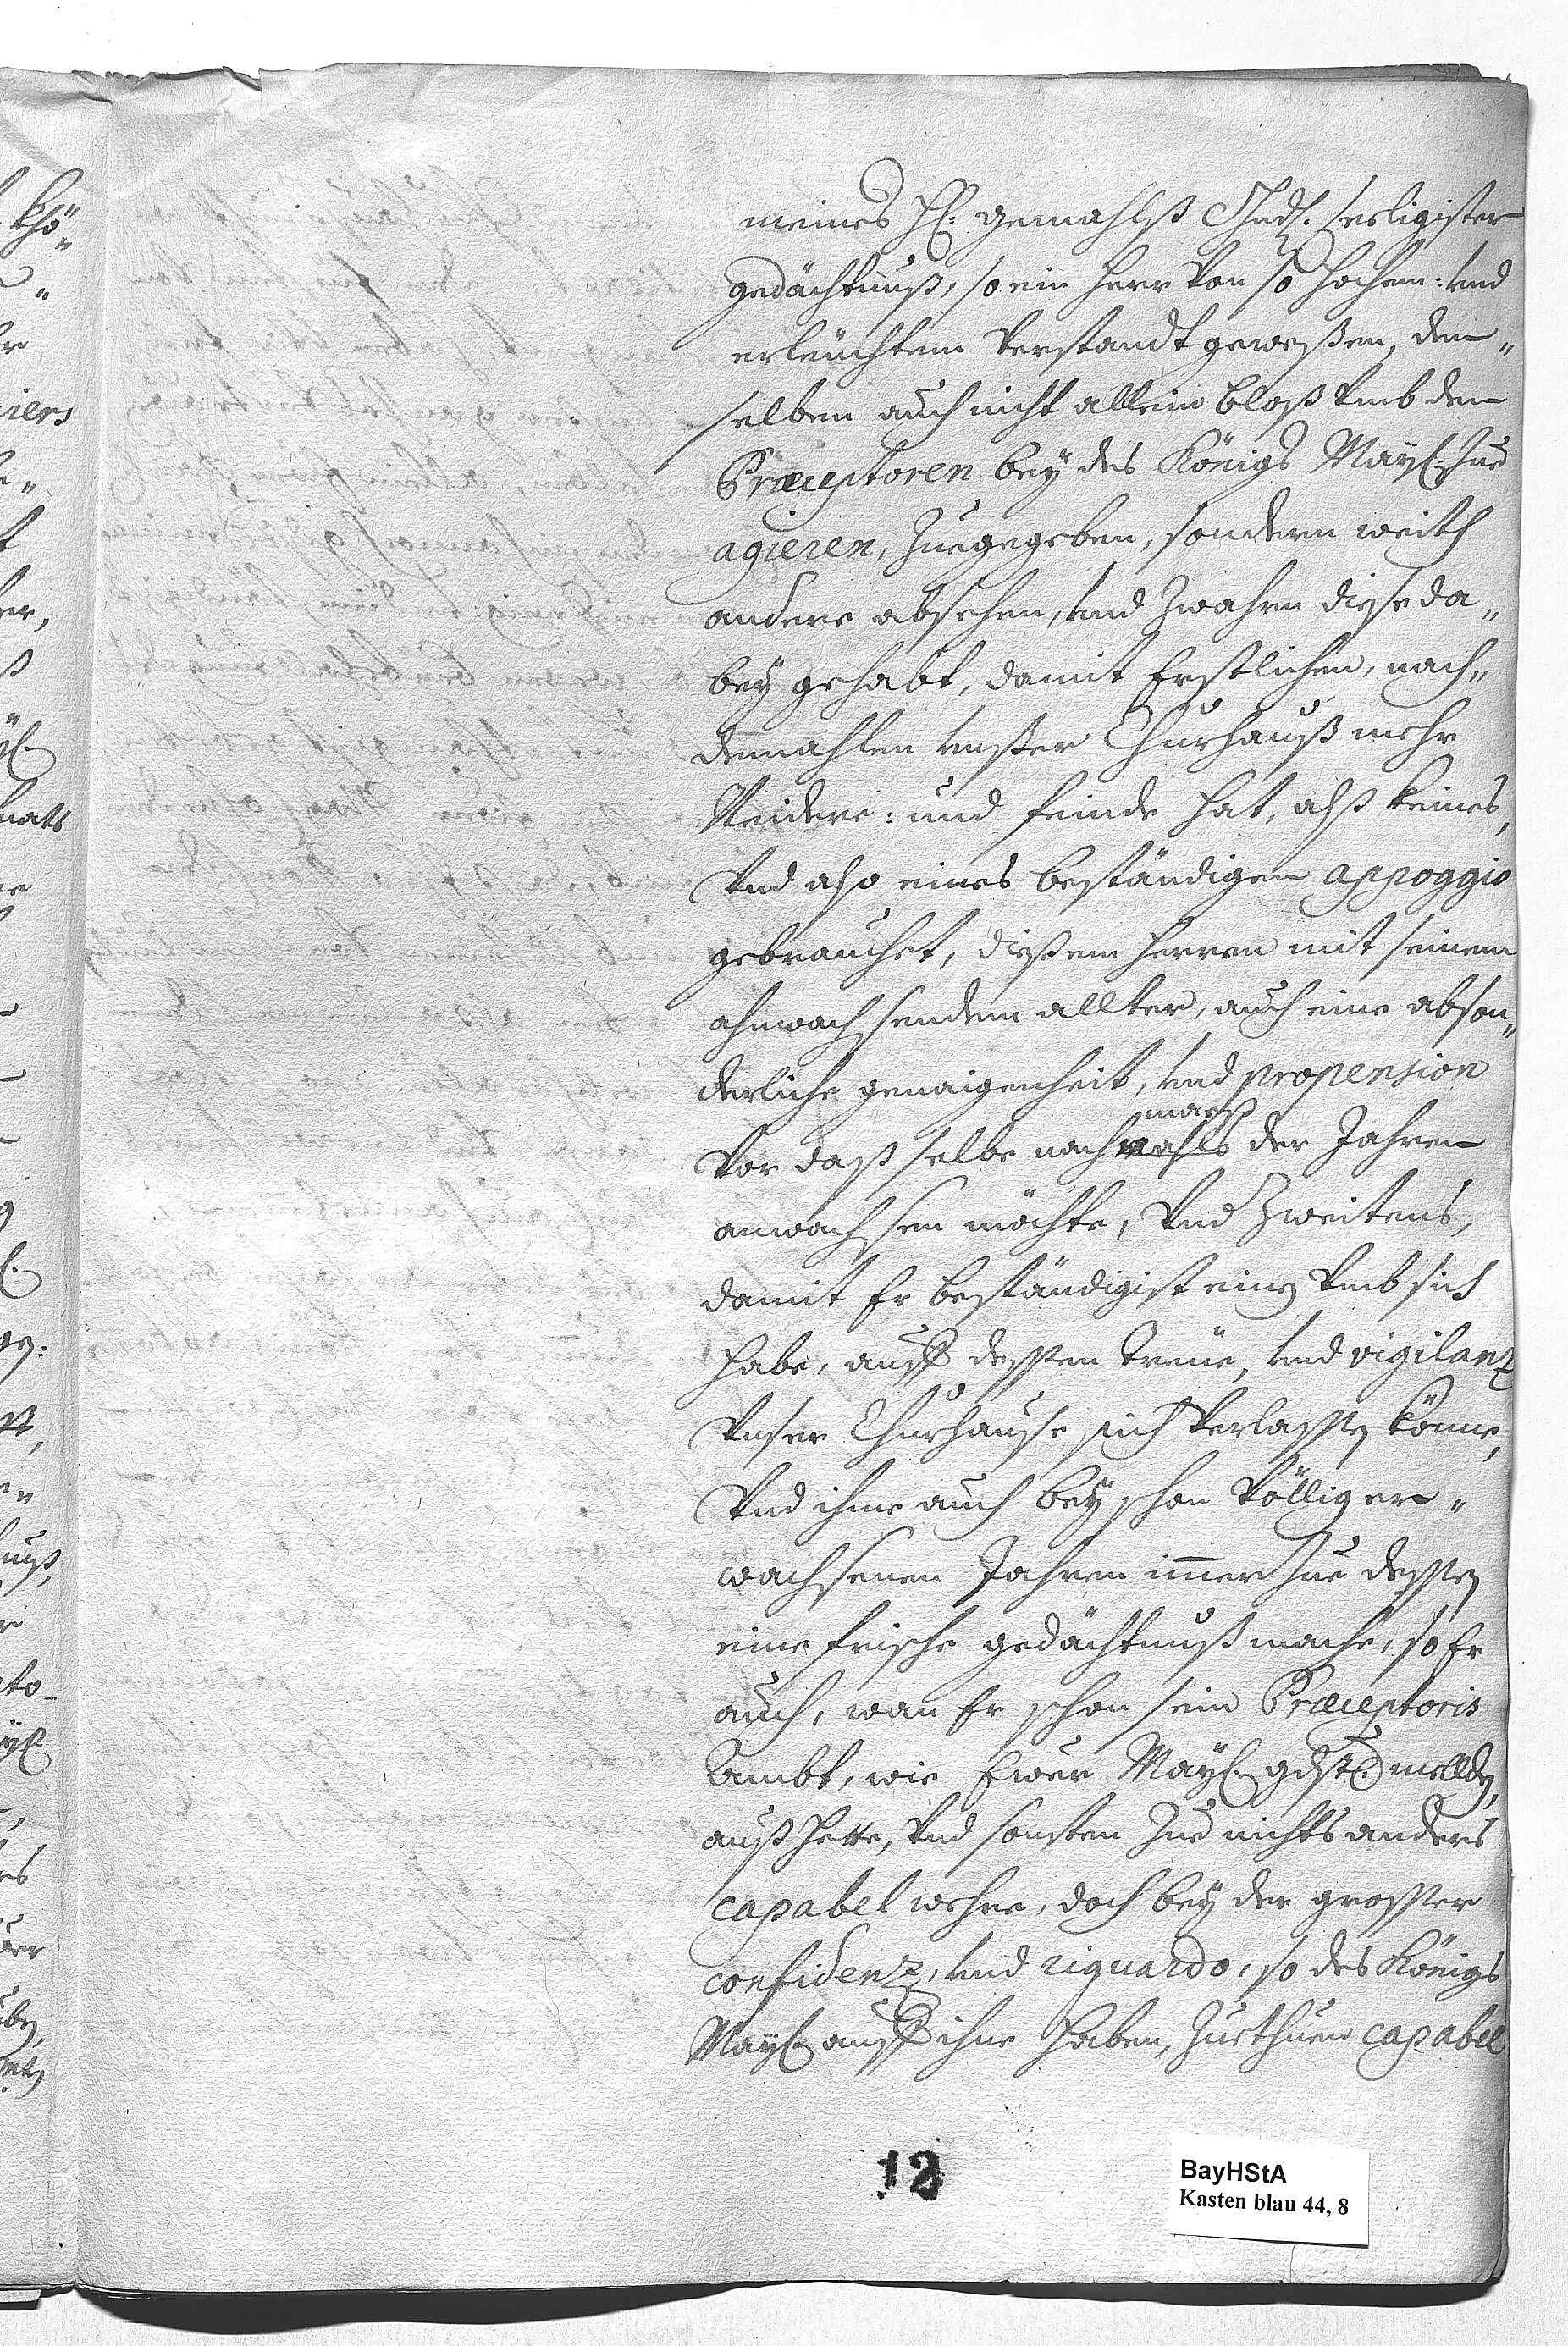 meines H: gemahlß Chrd: seeligister
gedächtnuß, so ein Herr von so hohem: vnd
erleüchtem Verstandt geweßen, den„
selben auch nicht allein bloß vmb den
Præceptoren bey des Königs May: zue
agieren, zuegegeben, sondern weith
andere absehen, vnd zwahrn diese da„
bey gehabt, damit Erstlichen, nach„
demmahlen vnßer Churhauß mehr
Neidere: und feinde hat, alß keines,
Vnd also eines beständigen appoggio
gebrauchet, dießem herren mit seinem
ahnwachsendem allter, auch eine abson„
derliche genaigenheit, vnd propension
mass
vor daß selbe nach der Jahren
anwachsen möchte, Vnd Zweitens,
damit Er beständigist einen vmb sich
habe, auff dessen treüe, vnd vigilanz
Vnser Churhause sich verlassen könne,
Vnd ihme auch bey schon völlig er„
wachsenen Jahren immer zue dessen
eine frische gedächtnuß mache, so Er
auch, wan Er schon sein Præceptoris
Ambt, wie Ewer May: gdst: mellden,
auß hette, Vnd sonsten zue nichts anders
capabel wehre, doch bey der grosser
confidenz, vnd riguardo, so des Königs
May: auff ihne haben, zuethuen capabel
12
BayHStA
Kasten blau 44, 8